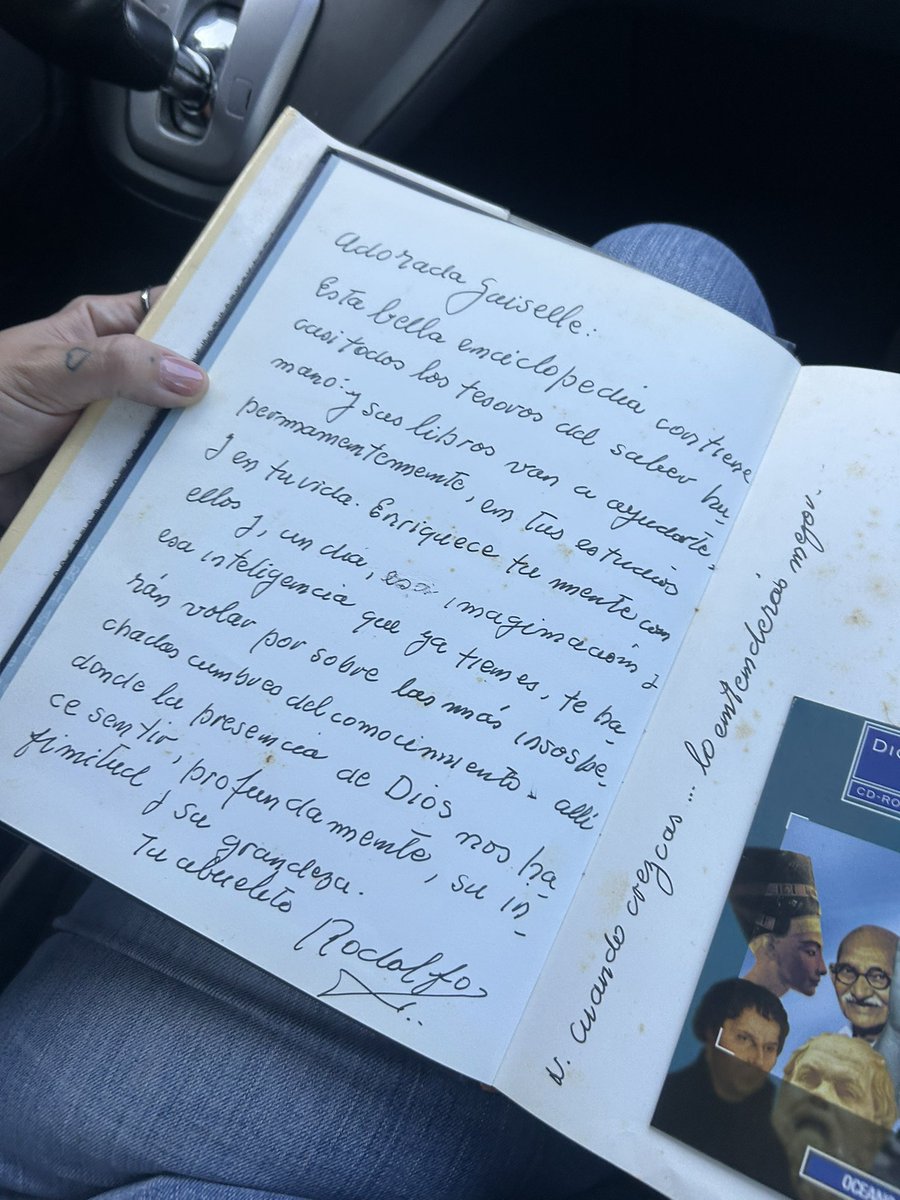 Adorada Gaiselle:
Esta bella enciclopedia contiene
casi todos los tesoros del saber hu-
mano: y sus libros van a ayudarte,
permanentemente, en tus estudios
y en tu vida. Enriquece tu mente con
ellos y, un día, imaginación y
esa inteligencia que ya tienes, te ha-
rán volar por sobre las más insospe-
chadas cumbres del conocimiento. allí
donde la presencia de Dios nos ha-
ce sentir, profundamente, su in-
finitud y su grandeza.
Tu abuelito Rodolfo
N. cuando crezcas... lo entenderás mejor.
CD-RO
OCEAN